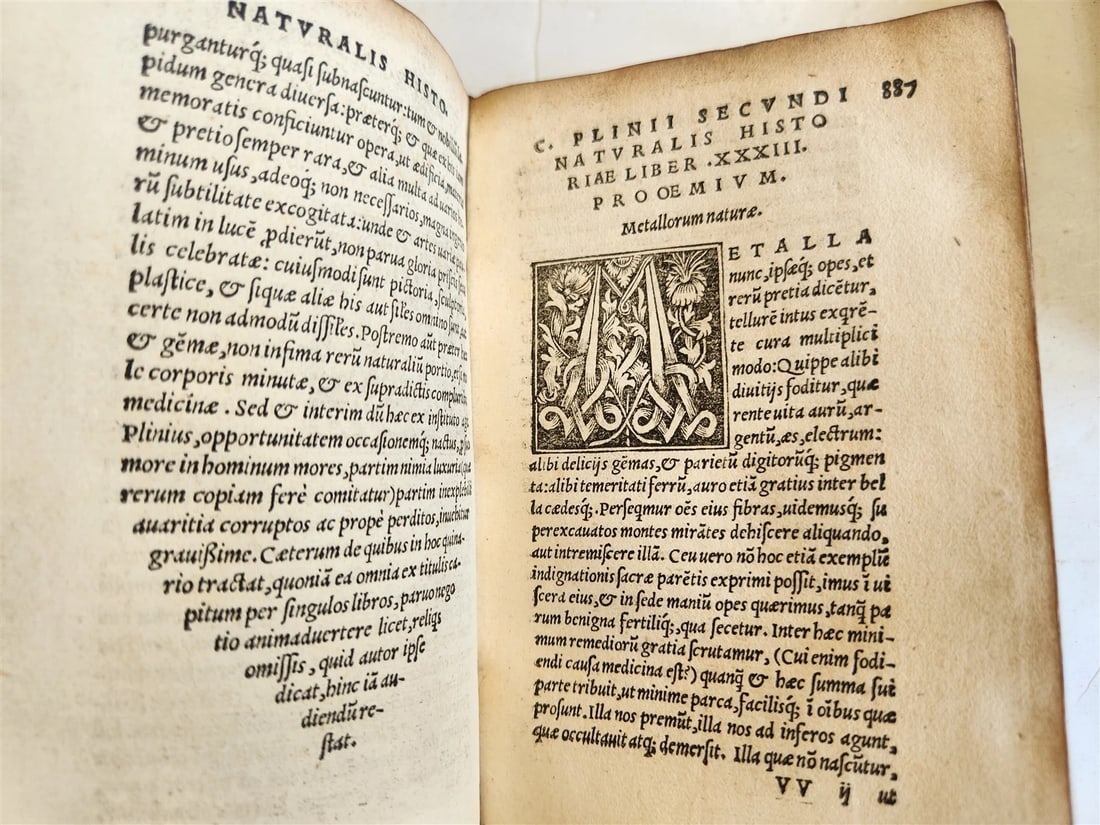 NATVRALIS HISTO.
purganturq́; quaſi ſubnaſcuntur: tum & nobilium
pidum genera diuerſa: præterq́; & quæ ex his iam
memoratis conficiuntur opera, ut ædificia,
& pretio ſemper rara, & alia multa ad uerius
minum uſus, adeoq́; non neceſſarios, magna
rū ſubtilitate excogitata: unde & artes uariæ
latim in lucē ꝓdierūt, non parua gloria priſcis
lis celebratæ: cuiuſmodi ſunt pictoria, ſculptoria,
plaſtice, & ſiquæ aliæ his aut ſiles omnino ſunt, aut
certe non admodū diſſiles. Poſtremo aūt præter hæc
& gēmæ, non infima rerū naturaliū portio, etſi
le corporis minutæ, & ex ſupradictis
medicinæ. Sed & interim dū hæc ex inſtituto agit
Plinius, opportunitatem occaſionemq́; nactus,
more in hominum mores, partim nimia luxuria (quæ
rerum copiam ferè comitatur) partim inexplebili
auaritia corruptos ac propè perditos, inuehitur
grauißime. Cæterum de quibus in hoc quina-
rio tractat, quoniā ea omnia ex titulis ca-
pitum per ſingulos libros, paruo nego
tio animaduertere licet, reliqs
omiſſis, quid autor ipſe
dicat, hinc iā au-
diendū re-
ſtat.
887
C. PLINII SECVNDI
NATVRALIS HISTO
RIAE LIBER .XXXIII.
PROOEMIVM.
Metallorum naturæ.
METALLA
nunc, ipſæq́; opes, et
rerū pretia dicētur,
tellurē intus exqrē-
te cura multiplici
modo: Quippe alibi
diuitijs foditur, quæ
rente uita aurū, ar-
gentū, æs, electrum:
alibi delicijs gēmas, & parietū digitorūq́; pigmen
ta: alibi temeritati ferrū, auro etiā gratius inter bel
la cædesq́;. Perſeqmur oēs eius fibras, uidemusq́; ſu
per excauatos montes mirātes dehiſcere aliquando,
aut intremiſcere illā. Ceu uero nō hoc etiā exemplū
indignationis ſacræ parētis exprimi poſſit, imus ī ui
ſcera eius, & in ſede maniū opes quærimus, tanq̄ pa
rum benigna fertiliq́;, qua ſecetur. Inter hæc mini-
mum remediorū gratia ſcrutamur, (Cui enim fodi-
endi cauſa medicina eſt?) quanq̄ & hæc ſumma ſui
parte tribuit, ut minime parca, facilisq́; ī oībus quæ
proſunt. Illa nos premūt, illa nos ad inferos agunt,
quæ occultauit atq; demerſit. Illa quæ nō naſcūtur,
VV ij ut